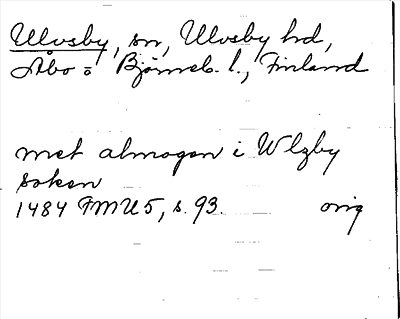 Ulvsby, sn, Ulvsby hd,
Åbo o Björneb. l., Finland
met almogan i Wlzby
soken
1484 FMU 5, s. 93. orig